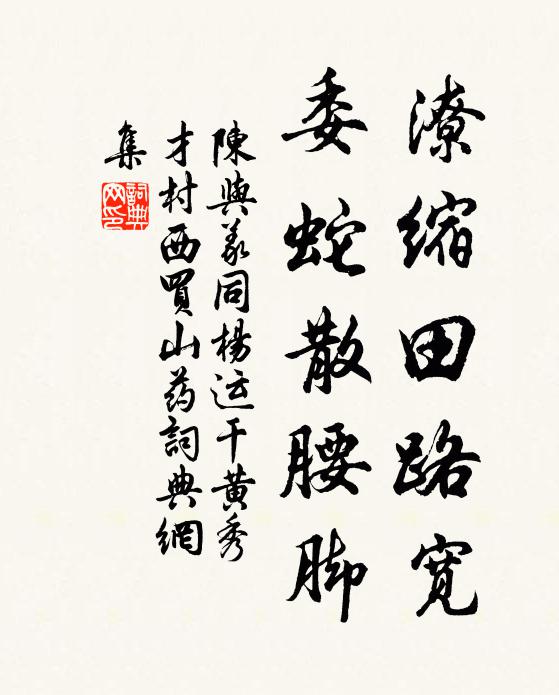 潦缩田路寬
委蛇散腰脚
陳與義同楊运干黄秀
才村西買山药詞典網
集
詞典
网印